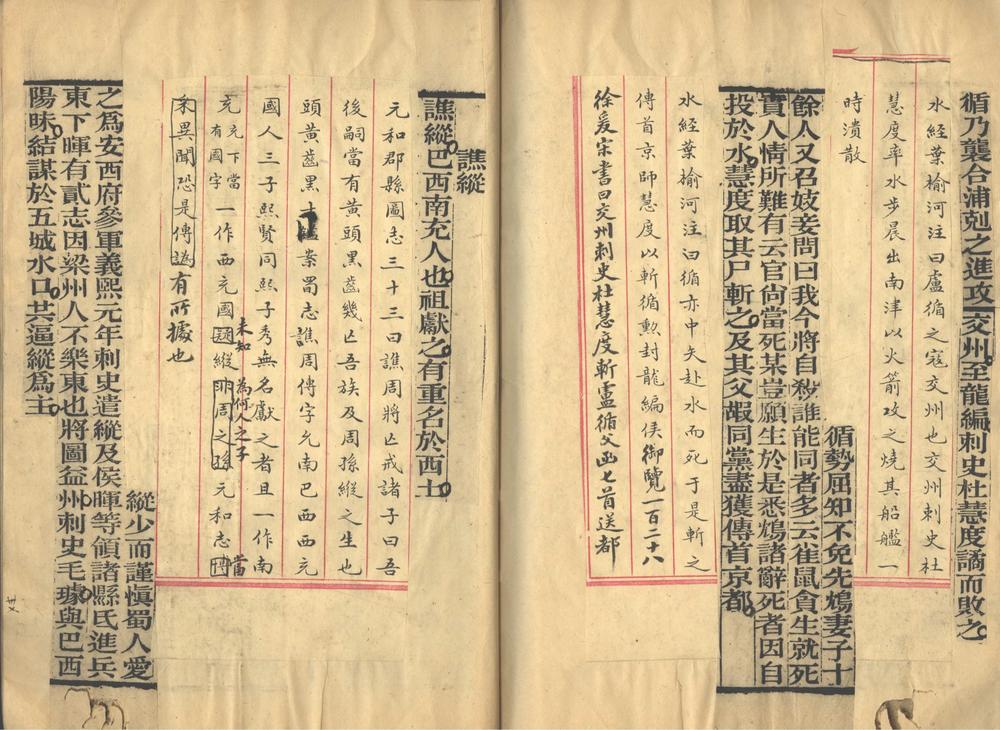 循乃襲合浦剋之進攻交州至龍編刺史杜慧度譎而敗之
水經葉榆河注曰盧循之寇交州也交州刺史杜
慧度率水步晨出南津以火箭攻之燒其船艦一
時潰散
循勢屈知不免先鴆妻子十
餘人又召妓妾問曰我今將自殺誰能同者多云雀鼠貪生就死
實人情所難有云官尙當死某豈願生於是悉鴆諸辭死者因自
投於水慧度取其尸斬之及其父嘏同黨盡獲傳首京都
水經葉榆河注曰循亦中矢赴水而死于是斬之
傳首京師慧度以斬循勲封龍編侯御覽一百二十八
徐爰宋書曰交州刺史杜慧度斬盧循父函七首送都
譙縱
譙縱巴西南充人也祖獻之有重名於西土
元和郡縣圖志三十三曰譙周將亡戒諸子曰吾
後嗣當有黄頭黑齒幾亡吾族及周孫縱之生也
頭黄齒黑 案蜀志譙周傳字允南巴西西充
國人三子熙賢同熙子秀無名獻之者且一作南
充充下當有國字一作西充國縱周之孫元和志當
未知為何人之子
采異聞恐是傳譌有所據也
縱少而謹愼蜀人愛
之爲安西府參軍義熙元年刺史遣縱及侯暉等領諸縣氐進兵
東下暉有貳志因梁州人不樂東也將圖益州刺史毛璩與巴西
陽昧結謀於五城水口共逼縱爲主